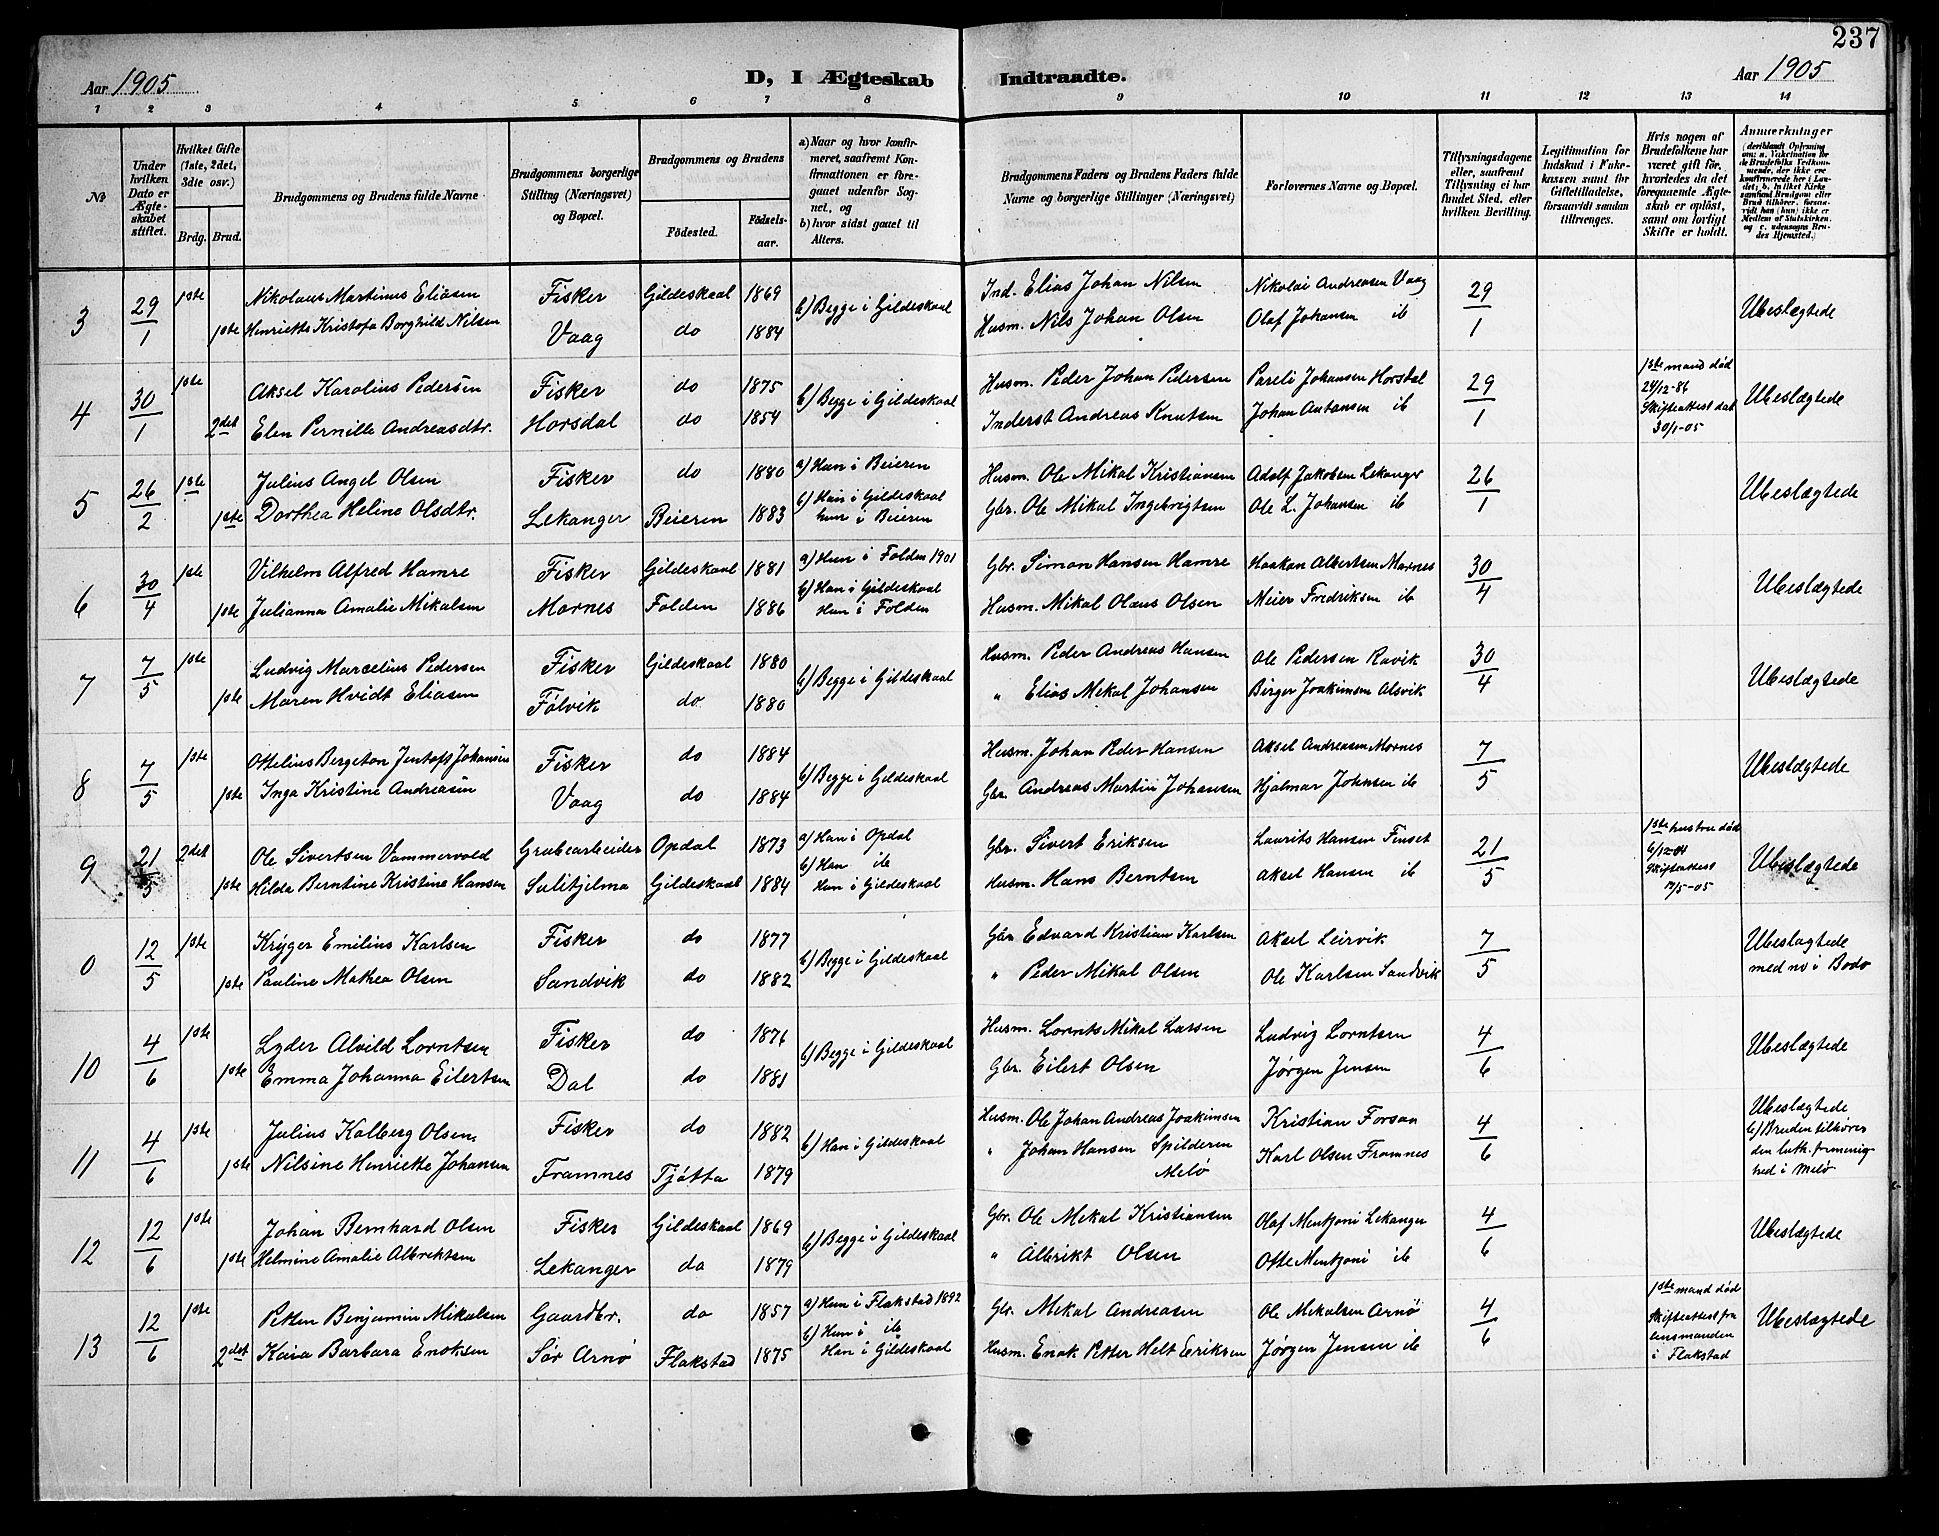 237
Aar 1905
D, I Ægteskab Indtraadte.
Aar 1905
1 2 3 4 5 6 7 8 9 10 11 12 13 14
№
Under hvilken Dato er Ægteskabet stiftet.
Hvilket Gifte (1ste, 2det, 3die osv.)
Brdg. Brud.
Brudgommens og Brudens fulde Navne
Brudgommens borgerlige Stilling (Næringsvei) og Bopæl.
Brudgommens og Brudens
Fødested.
Fødselsaar.
a) Naar og hvor konfirmeret, saafremt Konfirmationen er foregaaet udenfor Sognet, og
b) hvor sidst gaaet til Alters.
Brudgommens Faders og Brudens Faders fulde Navne og borgerlige Stillinger (Næringsvei)
Forlovernes Navne og Bopæl.
Tillysningsdagene eller, saafremt Tillysning ei har fundet Sted, efter hvilken Bevilling.
Legitimation for Indskud i Enkekassen samt for Giftetilladelse, forsaavidt saadan tiltrænges.
Hvis nogen af Brudefolkene har været gift før, hvorledes da det foregaaende Ægteskab er opløst, samt om lovligt Skifte er holdt.
Anmerkninger (deriblandt Oplysning om: a. Vakcination for de Brudefolks Vedkommende, der ikke ere konfirmerede her i Landet; b. hvilket Kirkesamfund Brudgom eller Brud tilhører, forsaavidt han (hun) ikke er Medlem af Statskirken, og c. udensogns Brudes Hjemsted.)
3 29/1 1ste Nikolaus Martinus Eliasen Fisker Gildeskaal 1869 b) Begge i Gildeskaal Ind. Elias Johan Nilsen Nikolai Andreasen Vaag 29/1 Ubeslægtede
1ste Henriette Kristofa Borghild Nilsen Vaag do 1884 Husm. Nils Johan Olsen Olaf Johansen ib
4 30/1 1ste Aksel Karolius Pedersen Fisker do 1875 b) Begge i Gildeskaal Husm. Peder Johan Pedersen Pareli Johansen Horsdal 29/1 1ste mand død 24/12-86 Skifteattest dat 30/1-05 Ubeslægtede
2det Elen Pernille Andreasdtr. Horsdal do 1854 Inderst Andreas Knutsen Johan Antonsen ib
5 26/2 1ste Julius Angel Olsen Fisker do 1880 a) Hun i Beieren Husm. Ole Mikal Kristiansen Adolf Jakobsen Lekanger 26/1 Ubeslægtede
1ste Dorthea Heline Olsdtr. Lekanger Beieren 1883 b) Han i Gildeskaal hun i Beieren Gbr. Ole Mikal Ingebrigtsen Ole L. Johansen ib
6 30/4 1ste Vilhelm Alfred Hamre Fisker Gildeskaal 1881 a) Hun i Folden 1901 Gbr. Simon Hansen Hamre Haakon Albertsen Mornes 30/4 Ubeslægtede
1ste Julianna Amalie Mikalsen Mornes Folden 1886 b) Han i Gildeskaal Hun i Folden Husm. Mikal Olaus Olsen Meier Fredriksen ib
7 7/5 1ste Ludvig Marcelius Pedersen Fisker Gildeskaal 1880 b) Begge i Gildeskaal Husm. Peder Andreas Hansen Ole Pedersen Ravik 30/4 Ubeslægtede
1ste Maren Hvidt Eliasen Følvik do 1880 " Elias Mekal Johansen Birger Joakimsen Alsvik
8 7/5 1ste Ottelius Bergeton Jentoft Johansen Fisker do 1884 b) Begge i Gildeskaal Husm. Johan Peder Hansen Aksel Andreasen Mornes 7/5 Ubeslægtede
1ste Inga Kristine Andreasen Vaag do 1884 Gbr. Andreas Martin Johansen Hjalmar Johnsen ib
9 21/5 2det Ole Sivertsen Vammervold Grubearbeider Opdal 1873 a) Han i Opdal Gbr. Sivert Eriksen Laurits Hansen Finset 21/5 1ste hustru død 6/12-04 Skifteattest 17/5-05 Ubeslægtede
1ste Hilda Berntine Kristine Hansen Sulitjelma Gildeskaal 1884 b) Han ib Hun i Gildeskaal Husm. Hans Berntsen Aksel Hansen ib
0 12/5 1ste Krýger Emilius Karlsen Fisker do 1877 b) Begge i Gildeskaal Gbr Edvard Kristian Karlsen Aksel Leirvik 7/5 Ubeslagtede med nv i Bodø
1ste Pauline Mathea Olsen Sandvik do 1882 " Peder Mikal Olsen Ole Karlsen Sandvik
10 4/6 1ste Lyder Alvild Lorntsen Fisker do 1876 b) Begge i Gildeskaal Husm. Lornts Mikal Larsen Ludvig Lorntsen 4/6 Ubeslægtede
1ste Emma Johanna Eilertsen Dal do 1881 Gbr. Eilert Olsen Jørgen Jensen
11 4/6 1ste Julius Kolberg Olsen Fisker do 1882 b) Han i Gildeskaal Husm. Ole Johan Andreas Joakimsen Kristian Forsaa 4/6 Ubeslægtede b) Bruden tilhører den luth. frimenighed i Melø
1ste Nilsine Henriette Johansen Framnes Tjøtta 1879 " Johan Hansen Spilderen Melø Karl Olsen Framnes
12 12/6 1ste Johan Bernhard Olsen Fisker Gildeskaal 1869 b) Begge i Gildeskaal Gbr. Ole Mekal Kristiansen Olaf Mentzoni Lekanger 4/6 Ubeslægtede
1ste Helmine Amalie Albrektsen Lekanger do 1879 " Albrikt Olsen Otto Mentzoni ib
13 12/6 1ste Petter Benjamin Mikalsen Gaardbr. do 1857 a) Hun i Flakstad 1892 Gbr. Mekal Andreasen Ole Mekalsen Arnø 4/6 1ste mand død Skifteattest fra lensmanden i Flakstad Ubeslægtede
2det Kaia Barbara Enoksen Sør Arnø Flakstad 1875 b) Hun i ib Han i Gildeskaal Husm. Enok Petter Helt Eriksen Jørgen Jensen ib